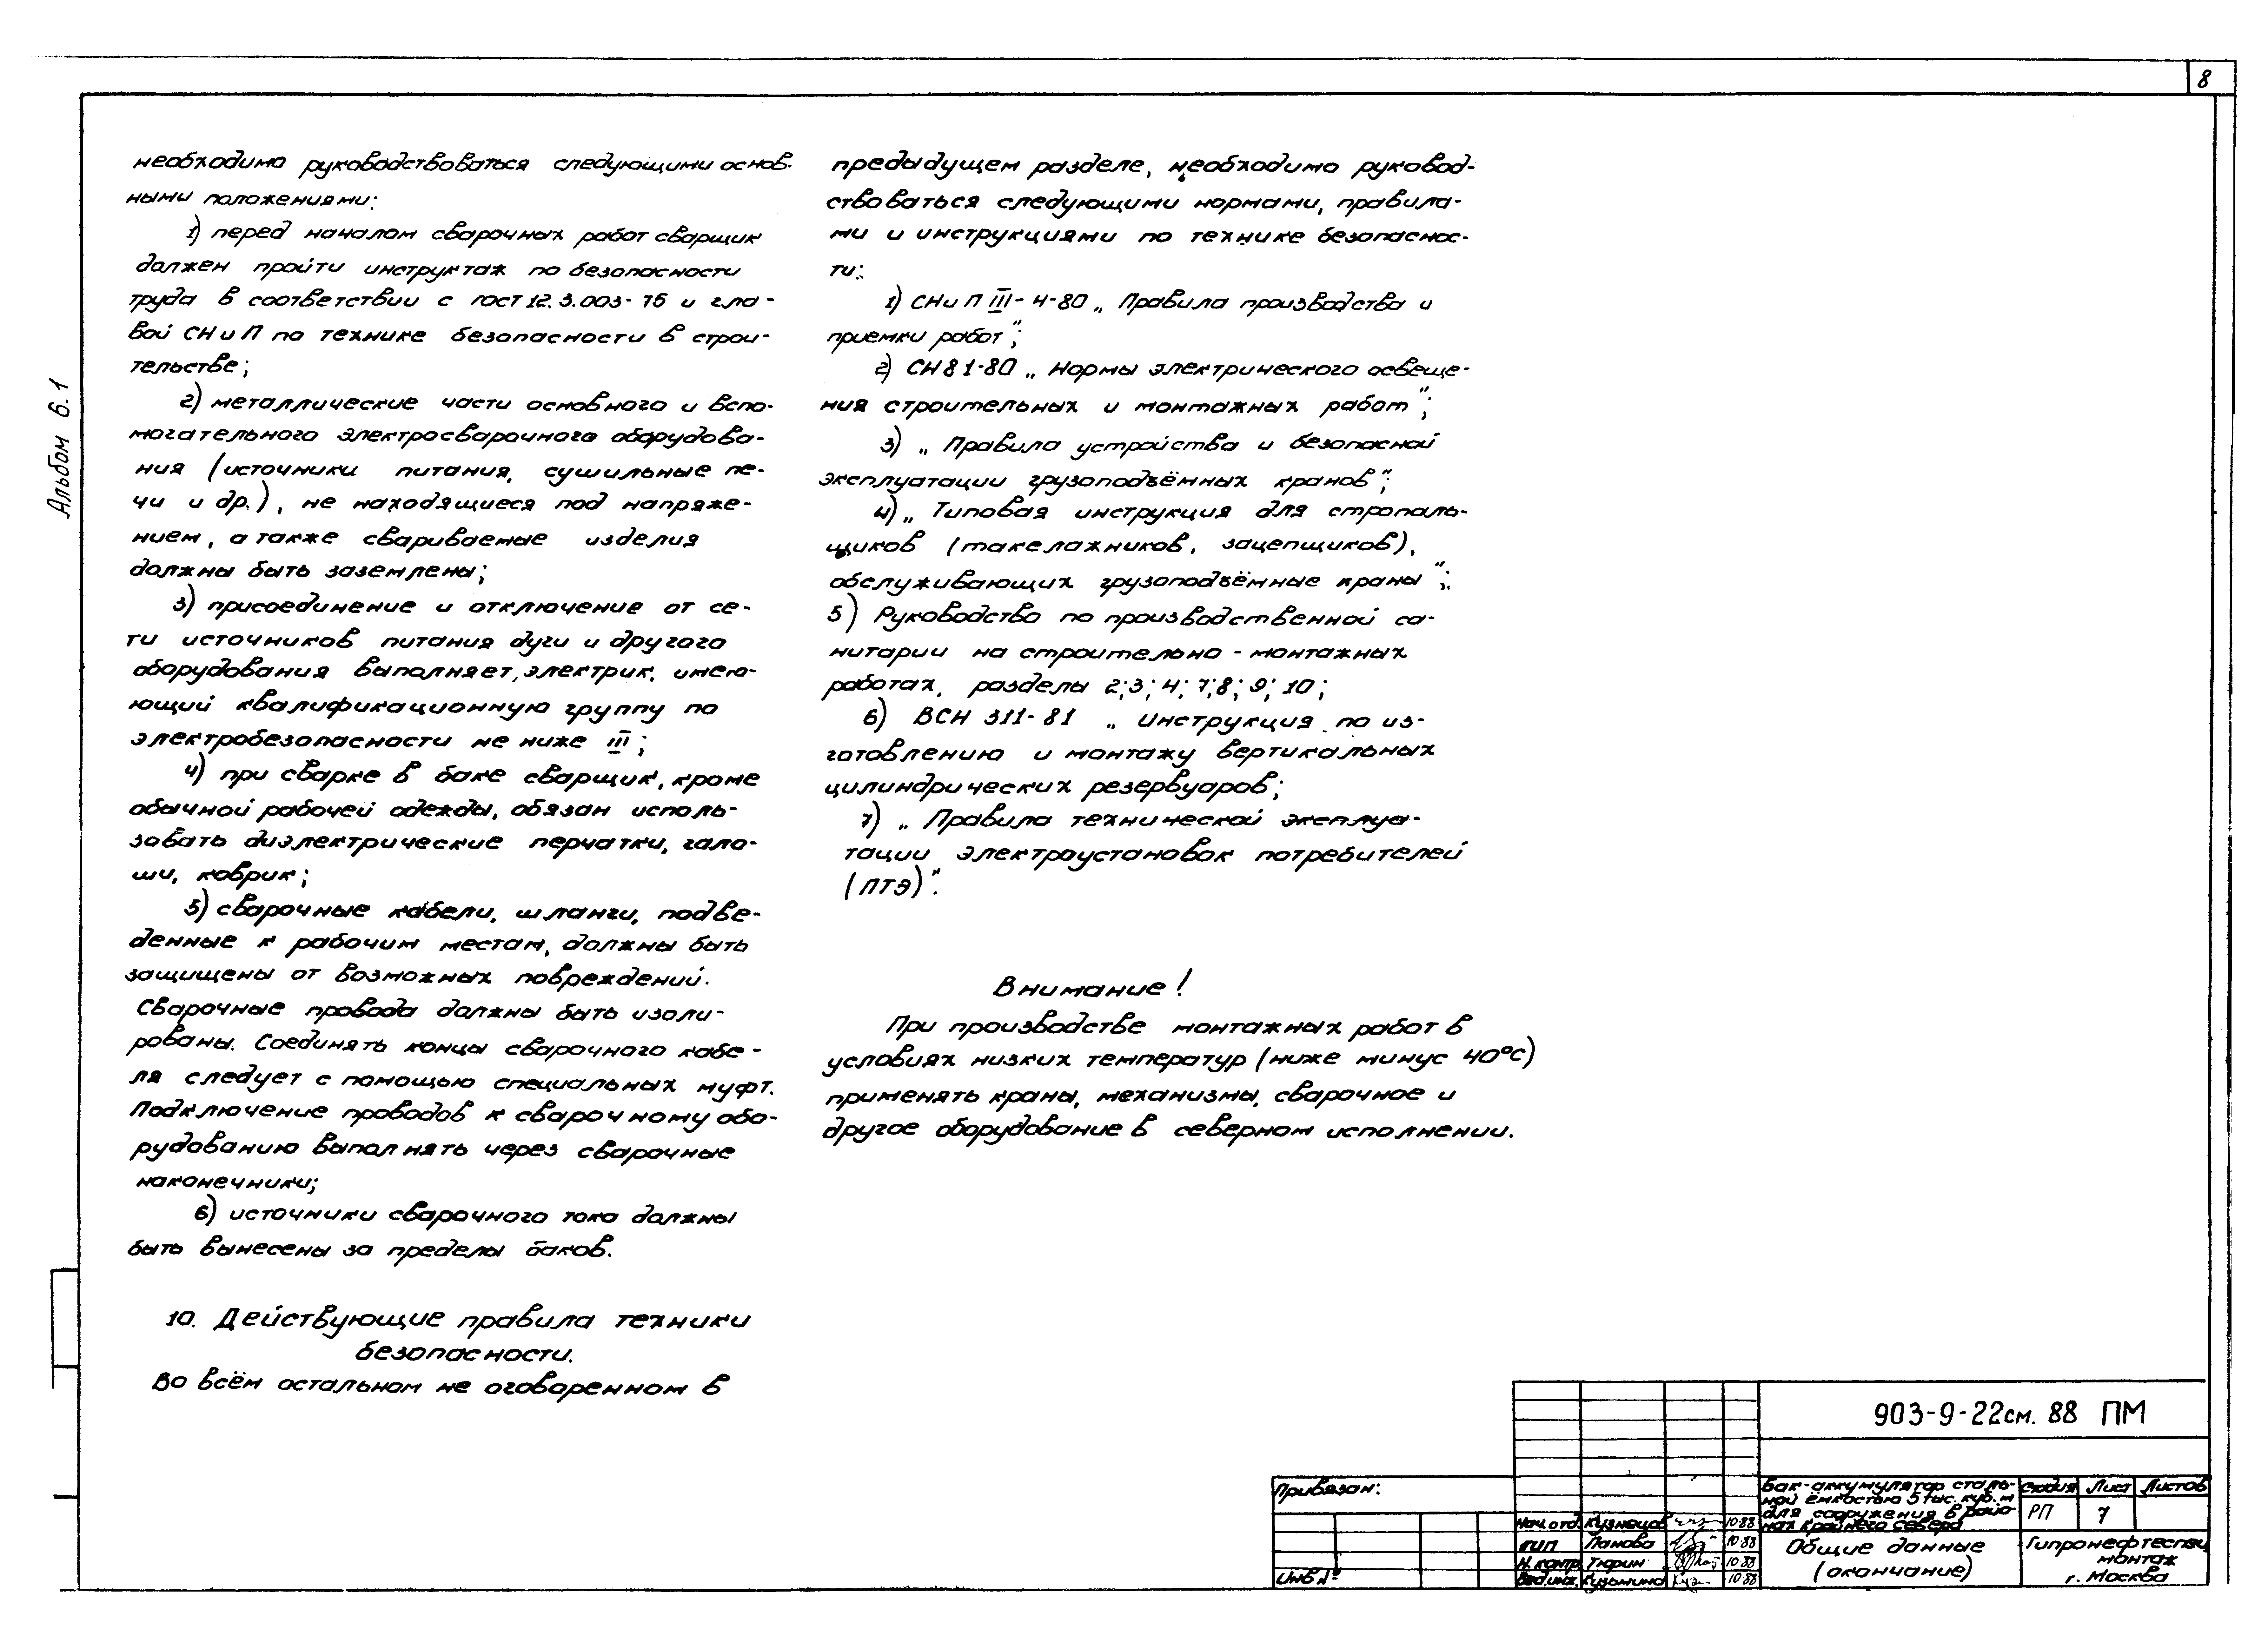 8
Альбом 6.1
необходимо руководствоваться следующими основ-
ными положениями:
1) перед началом сварочных работ сварщик
должен пройти инструктаж по безопасности
труда в соответствии с ГОСТ 12.3.003-75 и гла-
вой СНиП по технике безопасности в строи-
тельстве;
2) металлические части основного и вспо-
могательного электросварочного оборудова-
ния (источники питания, сушильные пе-
чи и др.), не находящиеся под напряже-
нием, а также свариваемые изделия
должны быть заземлены;
3) присоединение и отключение от се-
ти источников питания дуги и другого
оборудования выполняет, электрик, имею-
ющий квалификационную группу по
электробезопасности не ниже III;
4) при сварке в баке сварщик, кроме
обычной рабочей одежды, обязан исполь-
зовать диэлектрические перчатки, гало-
ши, коврик;
5) сварочные кабели, шланги, подве-
денные к рабочим местам, должны быть
защищены от возможных повреждений.
Сварочные провода должны быть изоли-
рованы. Соединять концы сварочного кабе-
ля следует с помощью специальных муфт.
Подключение проводов к сварочному обо-
рудованию выполнять через сварочные
наконечники;
6) источники сварочного тока должны
быть вынесены за пределы баков.
10. Действующие правила техники
безопасности.
Во всём остальном не оговоренном в
предыдущем разделе, необходимо руковод-
ствоваться следующими нормами, правила-
ми и инструкциями по технике безопаснос-
ти:
1) СНиП III-4-80 „Правила производства и
приемки работ";
2) СН 81-80 „Нормы электрического освеще-
ния строительных и монтажных работ";
3) „Правила устройства и безопасной
эксплуатации грузоподъёмных кранов";
4) „Типовая инструкция для стропаль-
щиков (такелажников, зацепщиков),
обслуживающих грузоподъёмные краны";
5) Руководство по производственной са-
нитарии на строительно-монтажных
работах, разделы 2; 3; 4; 7; 8; 9; 10;
6) ВСН 311-81 „Инструкция по из-
готовлению и монтажу вертикальных
цилиндрических резервуаров;
7) „Правила технической эксплуа-
тации электроустановок потребителей
(ПТЭ)".
Внимание!
При производстве монтажных работ в
условиях низких температур (ниже минус 40°С)
применять краны, механизмы, сварочное и
другое оборудование в северном исполнении.
903-9-22см. 88 ПМ
Привязан:
Инв №
Нач. отд. Кузнецов 10.88
ГИП Панова 10.88
Н. контр. Тюрин 10.88
Вед. инж. Кузьмина 10.88
Бак-аккумулятор сталь-
ной ёмкостью 5 тыс. куб. м
для сооружения в райо-
нах крайнего севера
Стадия Лист Листов
РП 7
Общие данные
(окончание)
Гипронефтеспец
монтаж
г. Москва